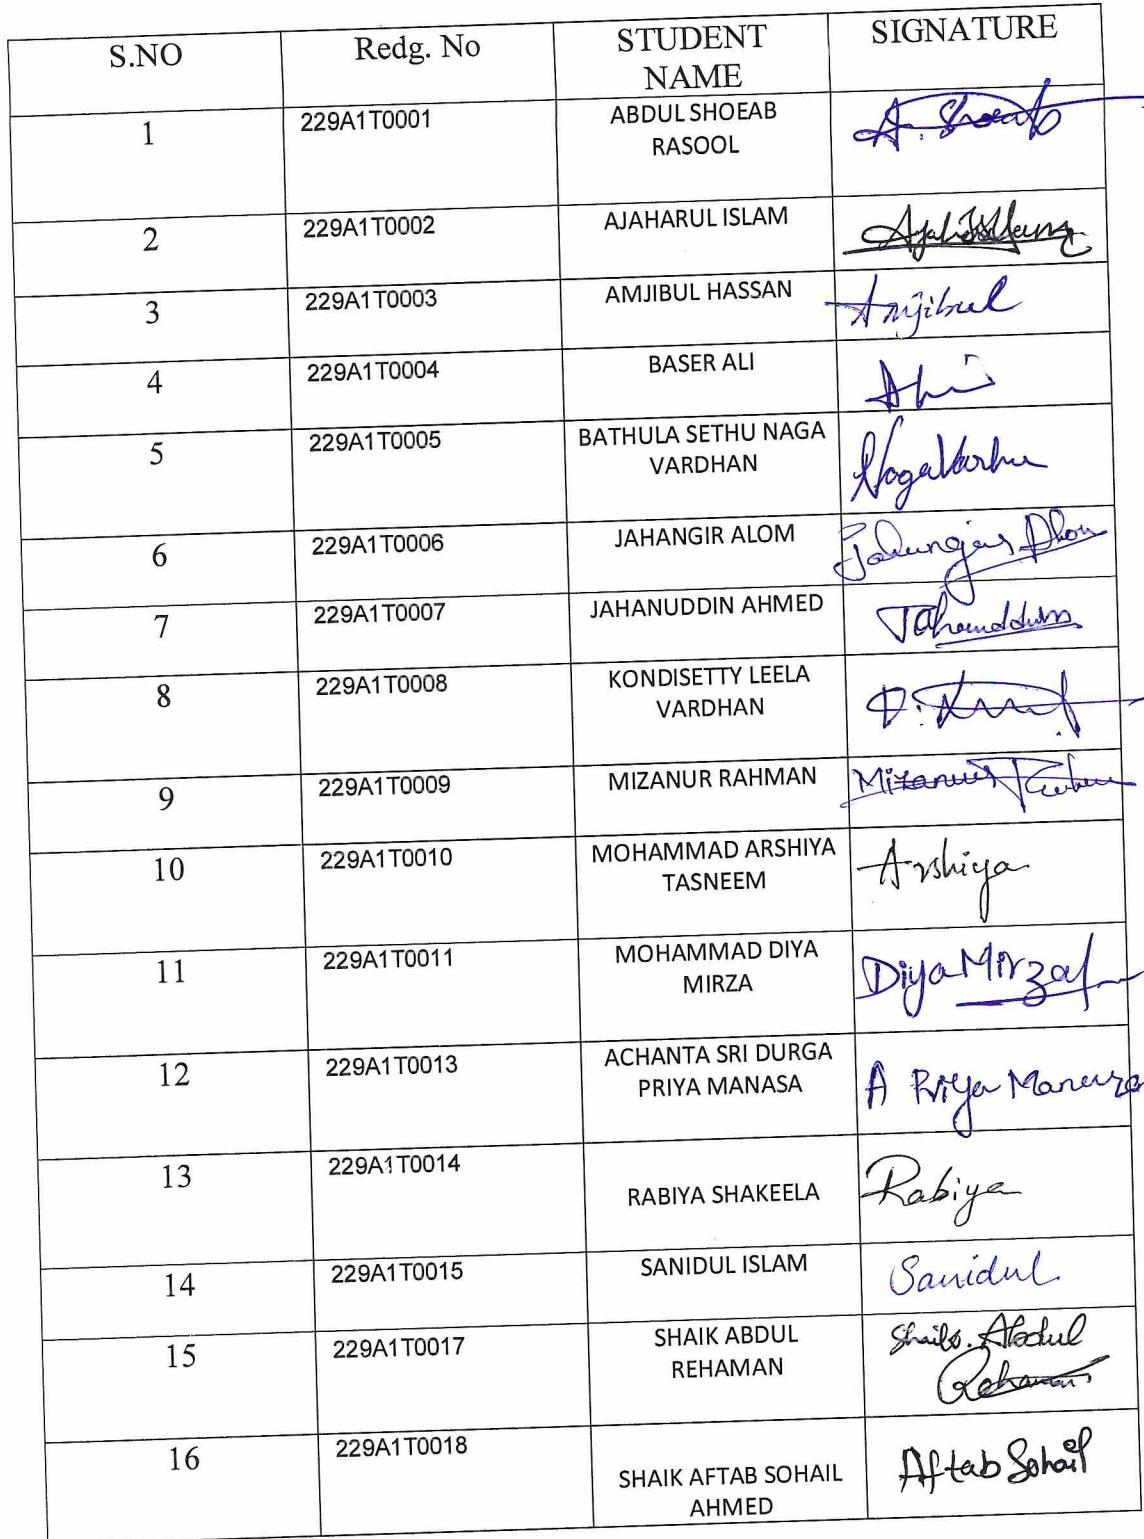 S.NO Redg. No STUDENT SIGNATURE
NAME
1 229A1T0001 ABDUL SHOEAB A. Shoeab
RASOOL
2 229A1T0002 AJAHARUL ISLAM
3 229A1T0003 AMJIBUL HASSAN Amjibul
4 229A1T0004 BASER ALI
5 229A1T0005 BATHULA SETHU NAGA
VARDHAN
6 229A1T0006 JAHANGIR ALOM Jahangir Alom
7 229A1T0007 JAHANUDDIN AHMED Jahanuddin
8 229A1T0008 KONDISETTY LEELA
VARDHAN
9 229A1T0009 MIZANUR RAHMAN Mizanur
10 229A1T0010 MOHAMMAD ARSHIYA Arshiya
TASNEEM
11 229A1T0011 MOHAMMAD DIYA Diya Mirza
MIRZA
12 229A1T0013 ACHANTA SRI DURGA A Priya Manasa
PRIYA MANASA
13 229A1T0014 RABIYA SHAKEELA Rabiya
14 229A1T0015 SANIDUL ISLAM Sanidul
15 229A1T0017 SHAIK ABDUL Shaik. Abdul
REHAMAN Rehaman
16 229A1T0018 SHAIK AFTAB SOHAIL Aftab Sohail
AHMED